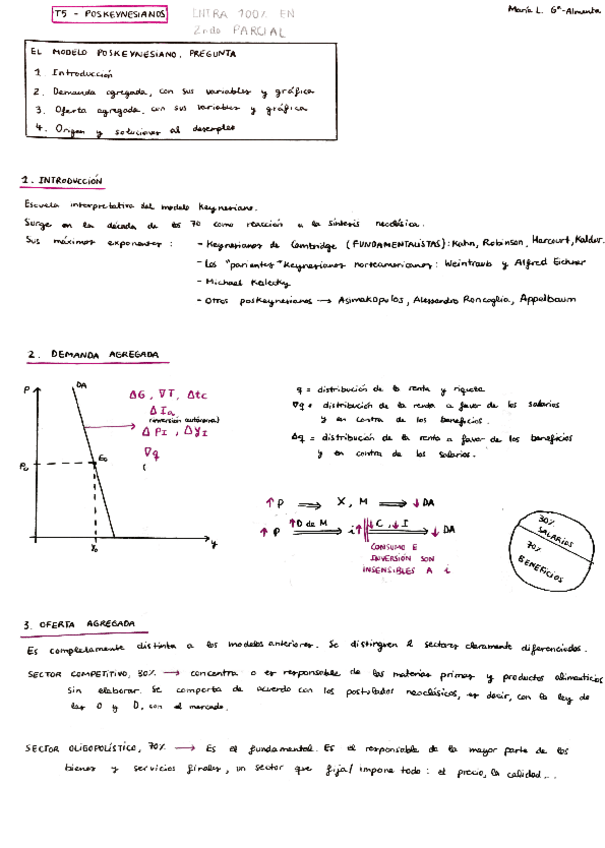 T5 - POSKEYNESIANOS
ENTRA 100% EN
2ndo PARCIAL
María L. Gª-Almenta
EL MODELO POSKEYNESIANO, PREGUNTA
1. Introducción
2. Demanda agregada, con sus variables y gráfica
3. Oferta agregada, con sus variables y gráfica
4. Origen y soluciones al desempleo
1. INTRODUCCIÓN
Escuela interpretativa del modelo Keynesiano.
Surge en la década de los 70 como reacción a la síntesis neoclásica.
Sus máximos exponentes:
- Keynesianos de Cambridge (FUNDAMENTALISTAS): Kahn, Robinson, Harcourt, Kaldor.
- Los "parientes" Keynesianos norteamericanos: Weintraub y Alfred Eichner
- Michael Kalecky
- Otros poskeynesianos → Asimakopulos, Alessandro Roncaglia, Appelbaum
2. DEMANDA AGREGADA
P
DA
ΔG, ∇T, Δtc
ΔIa
inversión autónoma
ΔPI, ΔyI
∇q
E0
P0
y0
y
q = distribución de la renta y riqueza
∇q = distribución de la renta a favor de los salarios
y en contra de los beneficios.
Δq = distribución de la renta a favor de los beneficios
y en contra de los salarios.
↑P ⇒ X, M ⇒ ↓DA
↑P ↑D de M ⇒ i↑ ↓C, ↓I ⇒ ↓DA
CONSUMO E
INVERSIÓN SON
INSENSIBLES A i
30%
SALARIOS
70%
BENEFICIOS
3. OFERTA AGREGADA
Es completamente distinta a los modelos anteriores. Se distinguen 2 sectores claramente diferenciados.
SECTOR COMPETITIVO, 30% → concentra o es responsable de las materias primas y productos alimenticios
sin elaborar. Se comporta de acuerdo con los postulados neoclásicos, es decir, con la ley de
las O y D, con el mercado.
SECTOR OLIGOPOLÍSTICO, 70% → Es el fundamental. Es el responsable de la mayor parte de los
bienes y servicios finales, un sector que fija/impone todo: el precio, la calidad...